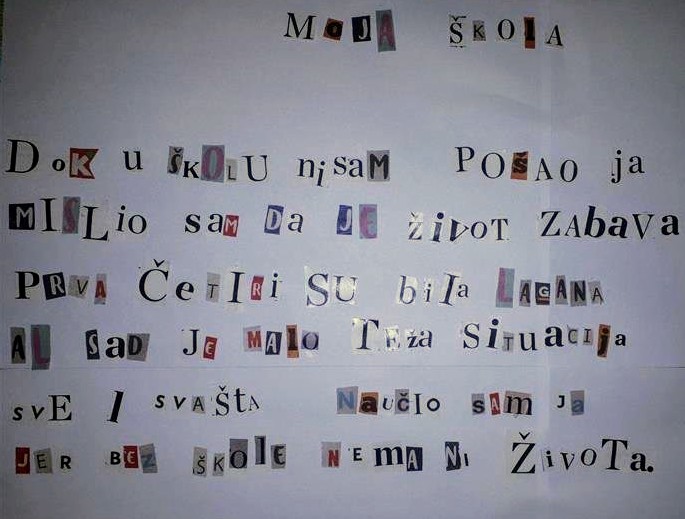 MOJA ŠKOLA
DOK u ŠKOLU nisam POŠAO ja
MISLio sam Da JE život ZAbaVa
PRVA ČeTIRi SU bila LAGANA
AL SaD Je MALO TEža SiTuaciја
SVE I SVAŠtA NaUČIO sam Ja
JER BEZ ŠKOlE NEma Ni ŽivoTa.